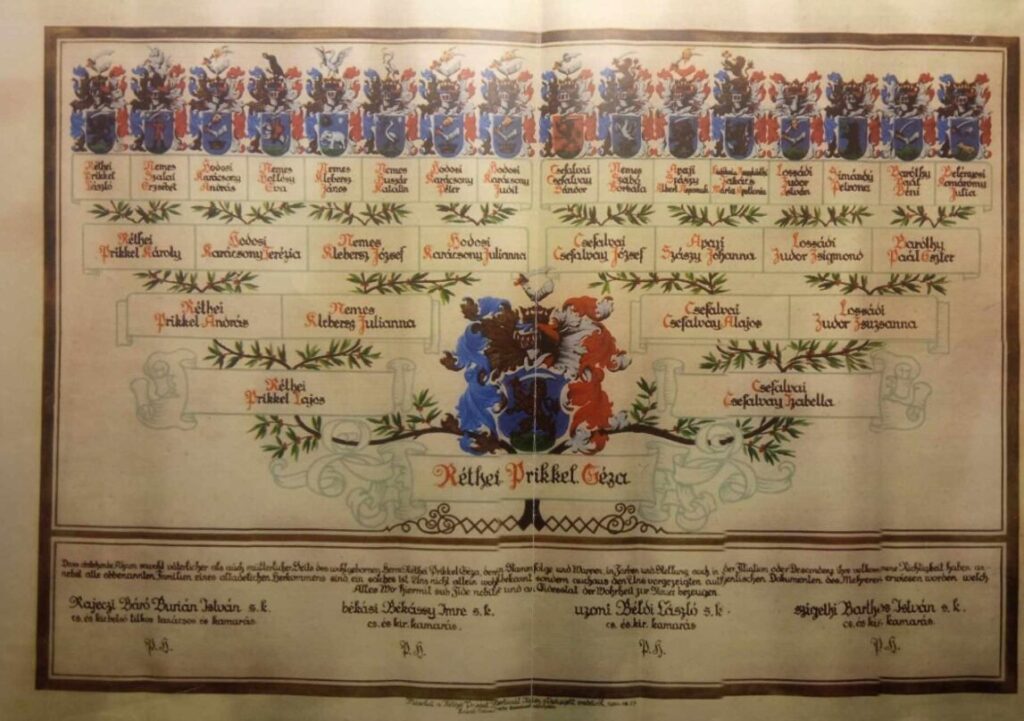 Réthei Prikkel László
Nemes Szalai Erzsébet
Hodosi Karácsony András
Nemes Éva
Nemes Klebersz János
Nemes Huszár Katalin
Hodosi Karácsony Péter
Hodosi Karácsony Judit
Csefalvai Csefalvay Sándor
Nemes Szabó Borbála
Apaji Szászy
Lossádi Zudor István
Simándy Petrona
Baróthy Paál Béni
Belényesi Komáromy Julia
Réthei
Prikkel Károly
Hodosi
Karácsony Terézia
Nemes
Klebersz József
Hodosi
Karácsony Julianna
Csefalvai
Csefalvay József
Apaji
Szászy Johanna
Lossádi
Zudor Zsigmond
Baróthy
Paál Eszter
Réthei
Prikkel András
Nemes
Klebersz Julianna
Csefalvai
Csefalvay Alajos
Lossádi
Zudor Zsuzsanna
Réthei
Prikkel Lajos
Csefalvai
Csefalvay Izabella
Réthei Prikkel Géza
Dass väterlicher als auch mütterlicher Seits des wohlgebornen Herrn Réthei Prikkel Géza, deren Stammfolge und Wappen, in Farben und Stellung auch in der Filiation oder Descendenz ihre vollkommene Richtigkeit haben,
nebst alle obbenannten Familien eines altadelichen Herkommens sind ein solches ist Uns nicht allein wohl bekannt sondern auch aus den Uns vorgezeigten authentischen Dokumenten des Mehreren erwiesen worden welch
Alles Wir hiermit sub fide nobili und an Eidesstat der Wahrheit zur Steuer bezeugen.
Rajeczi Báró Burián István s.k.
cs. és kir. belső titkos tanácsos és kamarás
P.H.
békási Békássy Imre s.k.
cs. és kir. kamarás.
P.H.
uzoni Béldi László s.k.
cs. és kir. kamarás
P.H.
szigethi Barthos István s.k.
cs. és kir. kamarás.
P.H.